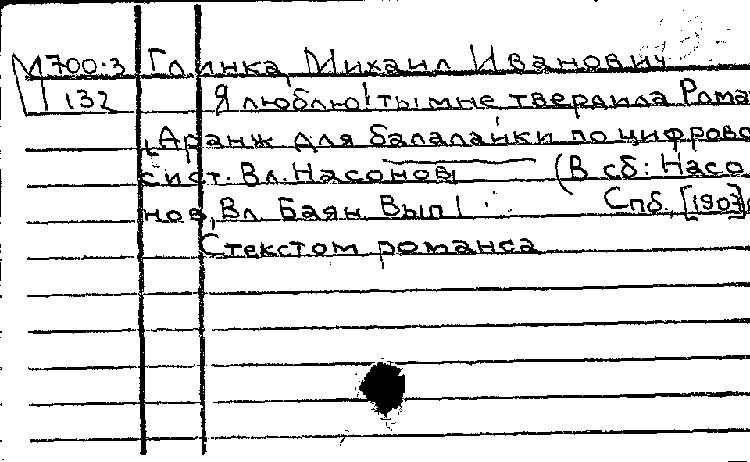 М700:3 Глинка, Михаил Иванович
132 Я люблю! ты мне твердила Рома
[Аранж для балалайки по цифрово
сист. Вл. Насонов] (В сб: Насо
нов, Вл. Баян Вып 1 Спб, [1903]
С текстом романса